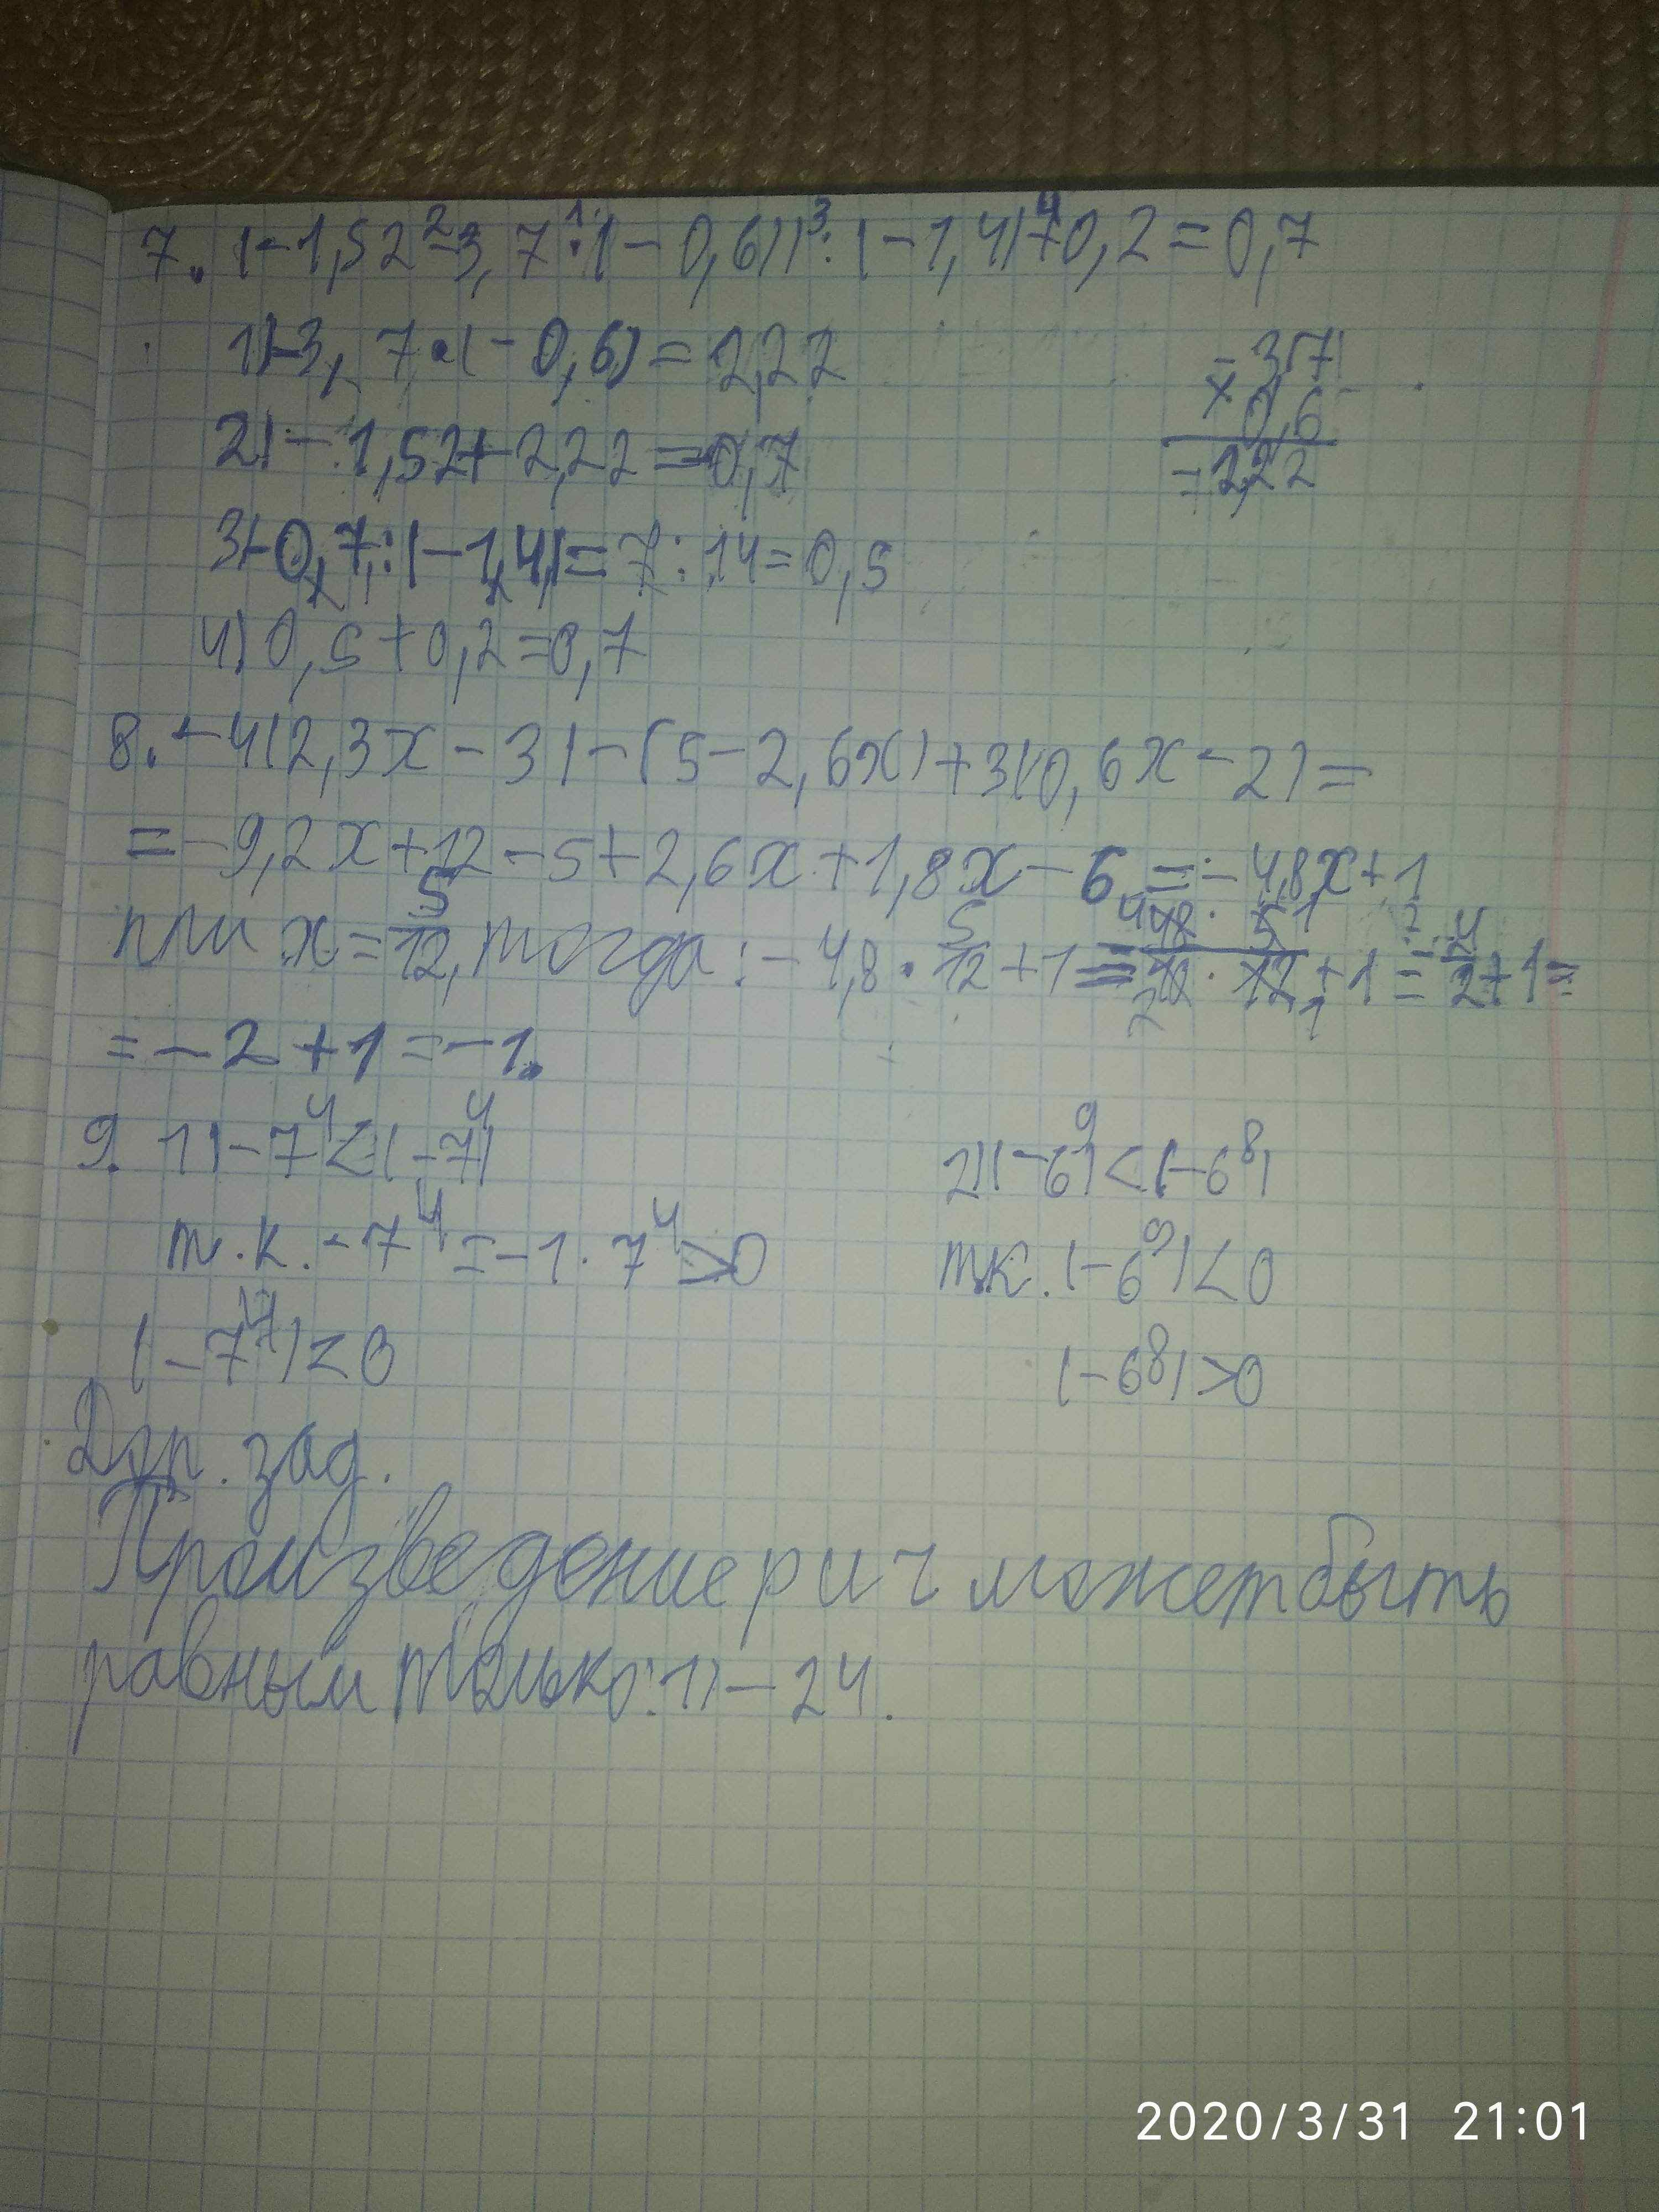 7. (-1,52²-3,7¹·(-0,6))³:(-1,4)⁴+0,2=0,7
1)-3,7·(-0,6)=2,22
-3,7
× 0,6
-2,22
2)-1,52+2,22=0,7
3)-0,7:(-1,4)=7:14=0,5
4)0,5+0,2=0,7
8. -4(2,3x-3)-(5-2,6x)+3(0,6x-2)=
=-9,2x+12-5+2,6x+1,8x-6=-4,8x+1
при x=5/12, тогда: -4,8·5/12+1=-48·5/10·12+1=-4/2+1=
=-2+1=-1.
9. 1)-7⁴<(-7⁴)
2)(-6)⁹<(-6⁸)
т.к. -7⁴=-1·7⁴>0
тк. (-6⁹)<0
(-7⁴)<0
(-6⁸)>0
Доп. зад.
Произведение р и ч может быть
равным только: 1) -24.
2020/3/31 21:01